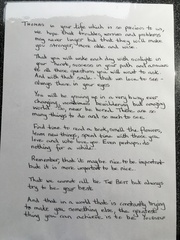 Thomas in your life which is so precious to us,
we hope that troubles, worries and problems
may never linger but that they will make
you stronger, more able and wise.
That you will wake each day with sunlight in
your heart, success in your path and answers
to all those questions you will want to ask.
And with that smile. that we love to see -
always there in your eyes
You will be growing up in a very busy, ever
changing sometimes bewildering but amazing
world. So, never be bored. There are so
many things to do and so much to see.
Find time to read a book, smell the flowers,
learn new things, spend time with those you
love and who love you. Even perhaps, do
nothing for a while!
Remember that its maybe nice to be important
but it is more important to be nice.
That we cannot all be The Best but always
try to be your best.
And that in a world that is constantly trying
to make you something else, the greatest
thing you can achieve, is to be